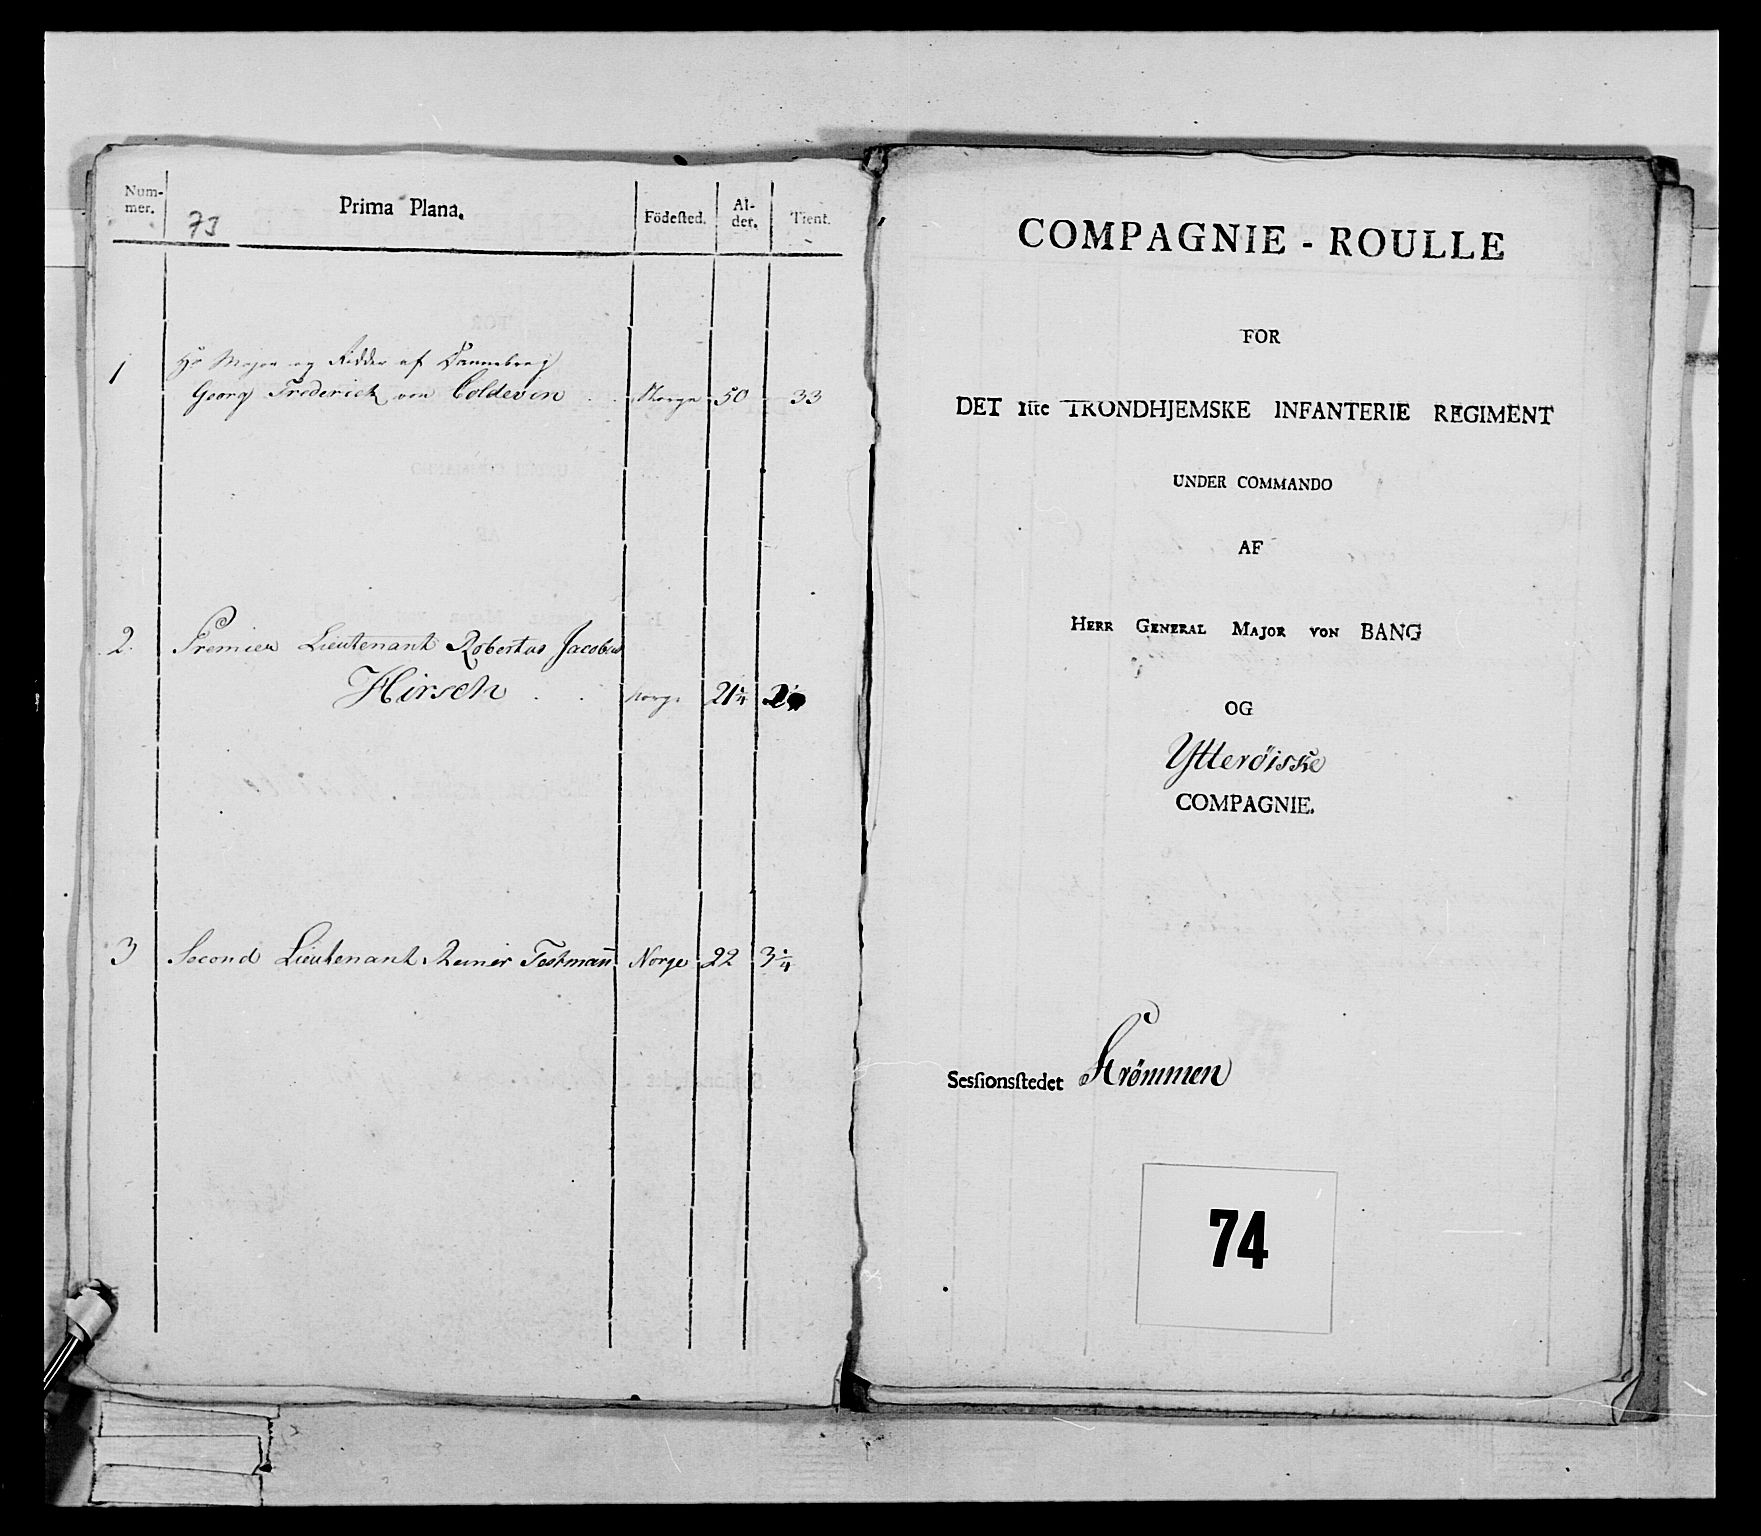 Num-
mer.
73
Prima Plana.
Födeſted.
Al-
der.
Tient.
1
Hr Major og Ridder af Dannebrog
Georg Frederich von Coldevin . . Norge 50 33
2. Premier Lieutenant Robertus Jacobus
Hirsch . . Norge 21¼
3 Second Lieutenant Reiner Testman̄ Norge 22 3¼
COMPAGNIE - ROULLE
FOR
DET 1ſte TRONDHJEMSKE INFANTERIE REGIMENT
UNDER COMMANDO
AF
HERR GENERAL MAJOR VON BANG
OG
Ytterøiske
COMPAGNIE.
Sesſionsſtedet Strømmen
74